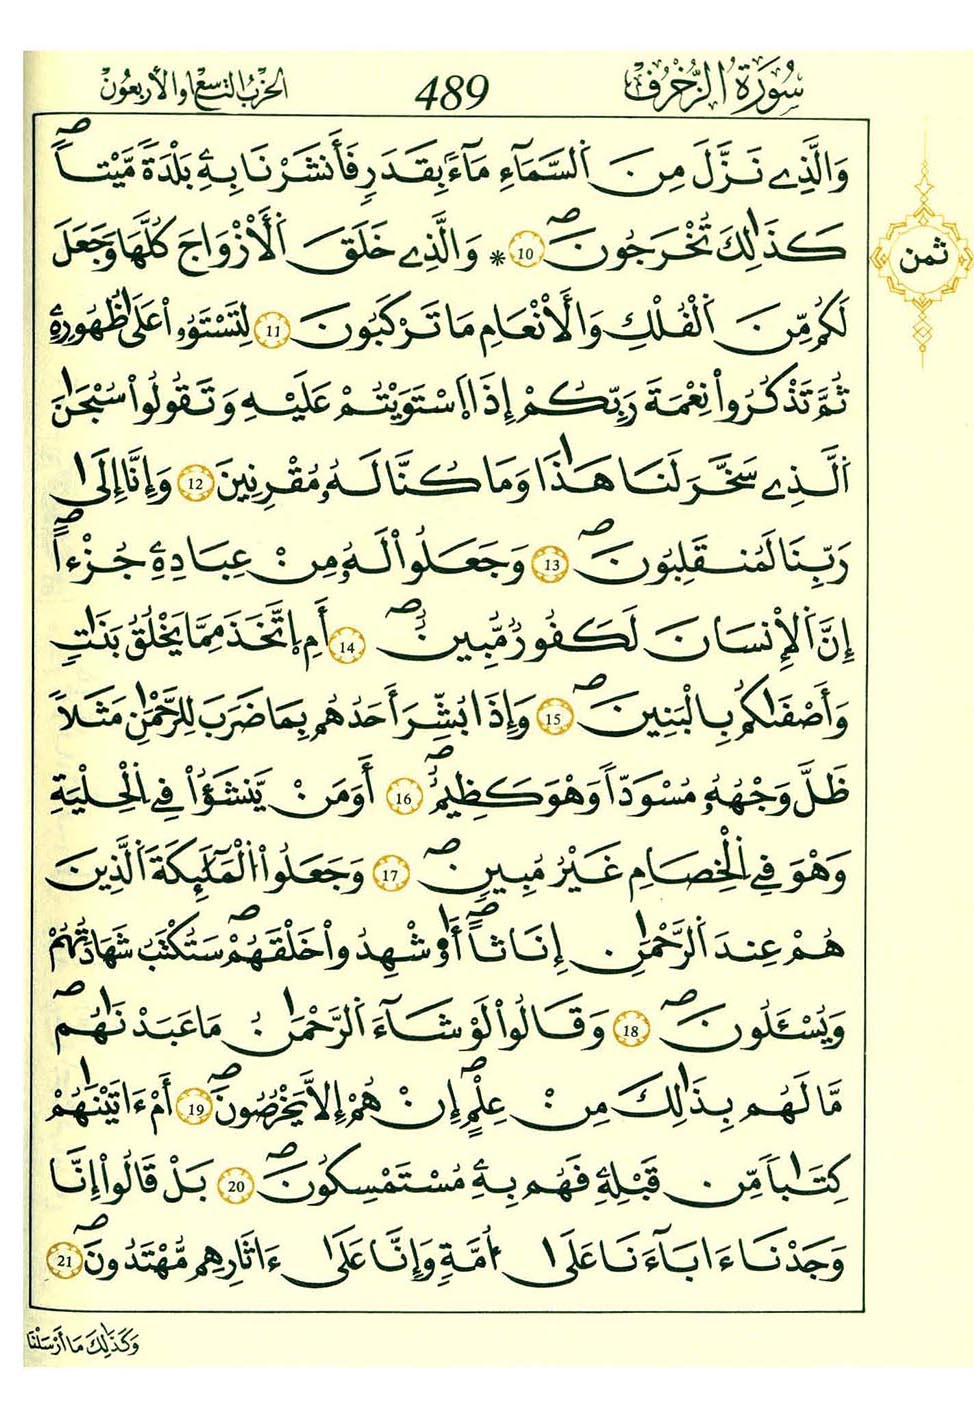 سُورَةُ الزُّخْرُفِ 489 الحِزْبُ التَّاسِعُ وَالأَرْبَعُونَ
وَالَّذِے نَزَّلَ مِنَ اَ۬لسَّمَآءِ مَآءَۢ بِقَدَرٖ فَأَنشَرْنَا بِهِۦ بَلْدَةٗ مَّيْتاٗۖ
كَذَٰلِكَ تُخْرَجُونَۖ 10 * وَالَّذِے خَلَقَ اَ۬لْأَزْوَاجَ كُلَّهَا وَجَعَلَ
ثمن
لَكُم مِّنَ اَ۬لْفُلْكِ وَالْأَنْعَامِ مَا تَرْكَبُونَ 11 لِتَسْتَوُۥاْ عَلَىٰ ظُهُورِهِۦ
ثُمَّ تَذْكُرُواْ نِعْمَةَ رَبِّكُمْ إِذَا اَ۪سْتَوَيْتُمْ عَلَيْهِ وَتَقُولُواْ سُبْحَٰنَ
اَ۬لَّذِے سَخَّرَ لَنَا هَٰذَا وَمَا كُنَّا لَهُۥ مُقْرِنِينَ 12 وَإِنَّا إِلَىٰ
رَبِّنَا لَمُنقَلِبُونَۖ 13 وَجَعَلُواْ لَهُۥ مِنْ عِبَادِهِۦ جُزْءاًۖ
إِنَّ اَ۬لْإِنسَانَ لَكَفُورٞ مُّبِينٌۖ 14 أَمِ اِ۪تَّخَذَ مِمَّا يَخْلُقُ بَنَاتٖ
وَأَصْفَىٰكُم بِالْبَنِينَۖ 15 وَإِذَا بُشِّرَ أَحَدُهُم بِمَا ضَرَبَ لِلرَّحْمَٰنِ مَثَلاٗ
ظَلَّ وَجْهُهُۥ مُسْوَدّاٗ وَهْوَ كَظِيمٌۖ 16 أَوَمَنْ يَّنشَؤُاْ فِے اِ۬لْحِلْيَةِ
وَهْوَ فِے اِ۬لْخِصَامِ غَيْرُ مُبِينٖۖ 17 وَجَعَلُواْ اُ۬لْمَلَٰٓئِكَةَ اَ۬لَّذِينَ
هُمْ عِندَ اَ۬لرَّحْمَٰنِ إِنَاثاًۖ أَٰ۟شْهِدُواْ خَلْقَهُمْۖ سَتُكْتَبُ شَهَٰدَتُهُمْ
وَيُسْـَٔلُونَۖ 18 وَقَالُواْ لَوْ شَآءَ اَ۬لرَّحْمَٰنُ مَا عَبَدْنَٰهُمۖ
مَّا لَهُم بِذَٰلِكَ مِنْ عِلْمٍۖ إِنْ هُمْ إِلَّا يَخْرُصُونَۖ 19 أَمْ ءَاتَيْنَٰهُمْ
كِتَٰباٗ مِّن قَبْلِهِۦ فَهُم بِهِۦ مُسْتَمْسِكُونَۖ 20 بَلْ قَالُواْ إِنَّا
وَجَدْنَا ءَابَآءَنَا عَلَىٰ أُمَّةٖ وَإِنَّا عَلَىٰ ءَاثَٰرِهِم مُّهْتَدُونَۖ 21
وَكَذَٰلِكَ مَا أَرْسَلْنَا